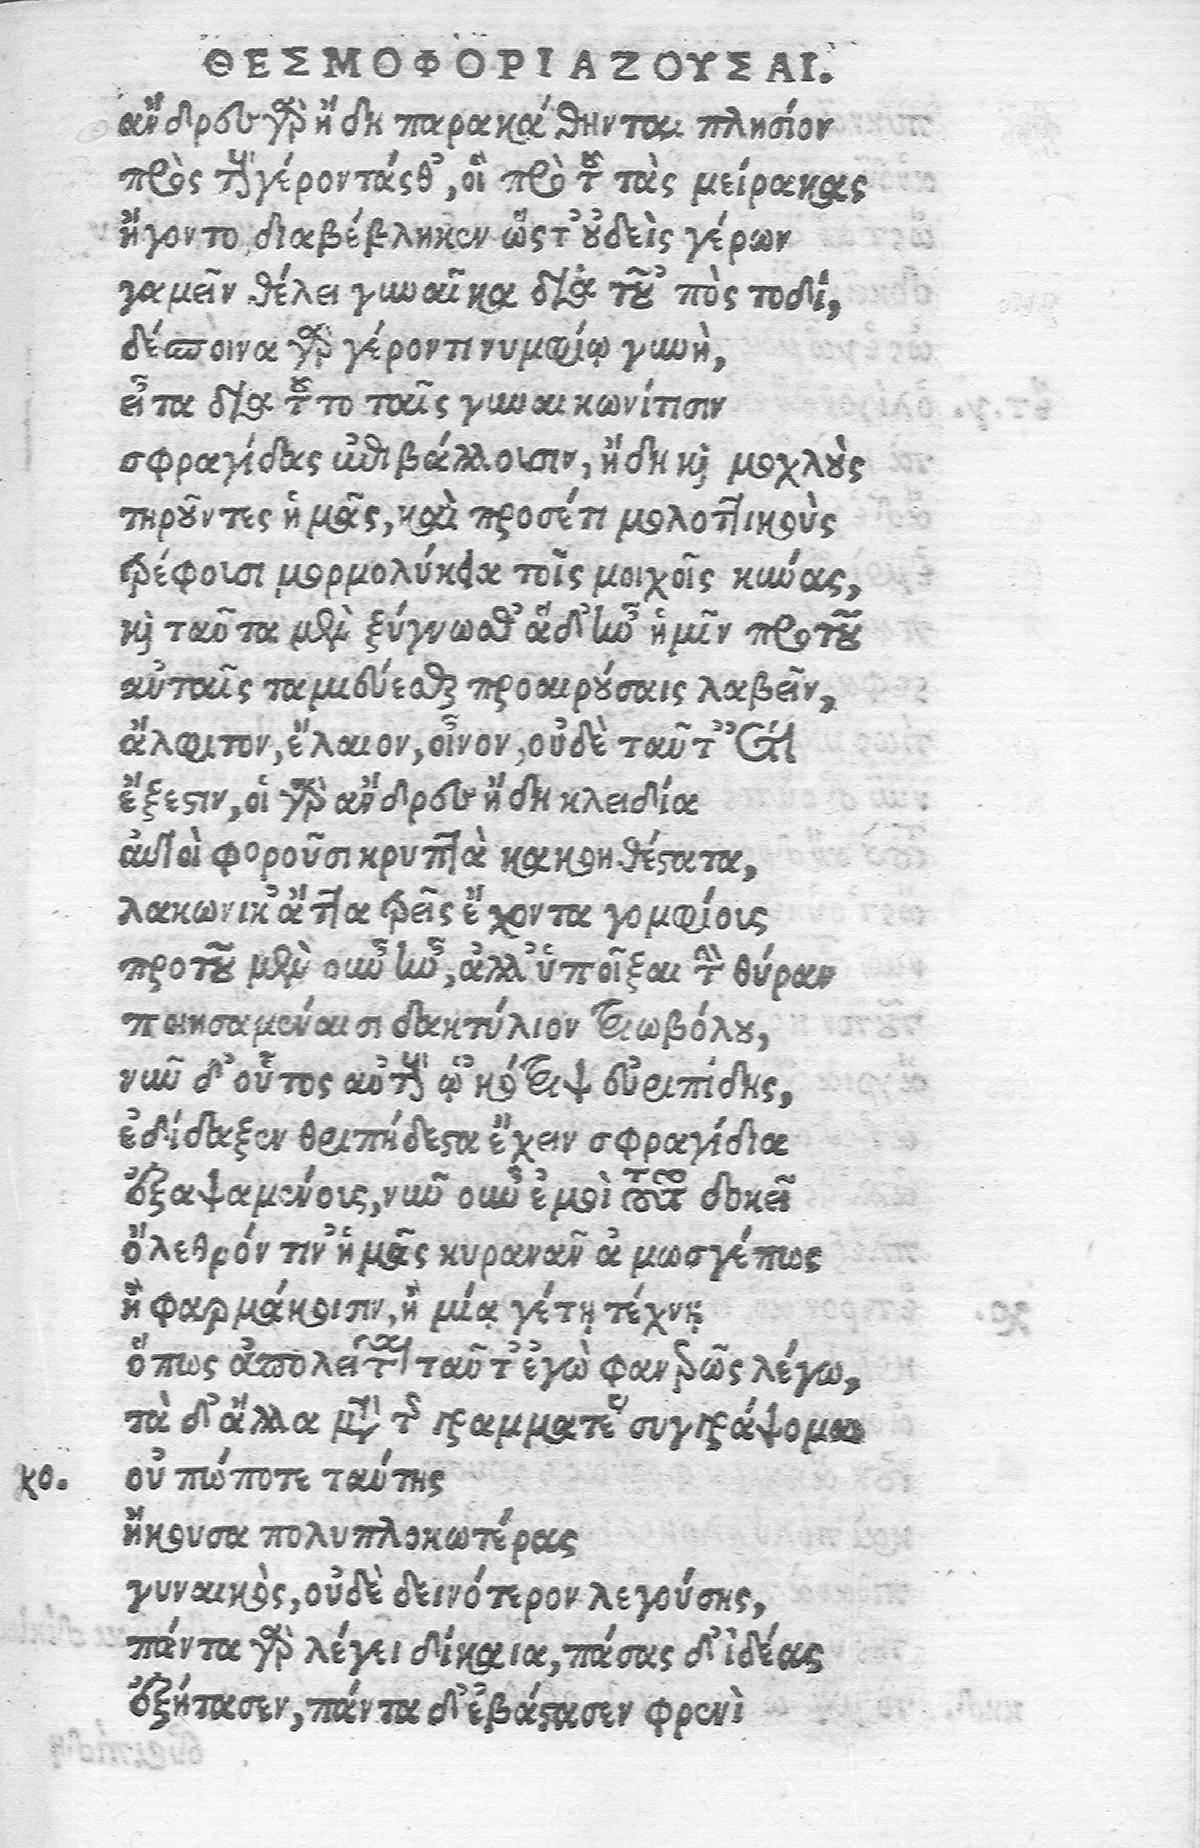 ΘΕΣΜΟΦΟΡΙΑΖΟΥΣΑΙ.
ἄνδρες γὰρ ἤδη παρακάθηνται πλησίον
πρὸς τοὺς γέροντάς θ', οἳ πρὸ τοῦ τὰς μείρακας
ἤγοντο διαβέβληκεν ὥς τ' οὐδεὶς γέρων
γαμεῖν θέλει γυναῖκα διὰ τοὖπος τοδί,
δέσποινα γὰρ γέροντι νυμφίῳ γυνὴ,
εἶτα διὰ τοῦτο ταῖς γυναικωνίτισιν
σφραγίδας ἐπιβάλλουσιν, ἤδη καὶ μοχλοὺς
τηροῦντες ἡμᾶς, καὶ προσέτι μολοττικοὺς
τρέφουσι μορμολύκεια τοῖς μοιχοῖς κύνας,
καὶ ταῦτα μὲν ξύγνωσθ' ἃ δ' ἦν ἡμῖν προτοῦ
αὐταῖς ταμιεύεσθαι προαιρούσαις λαβεῖν,
ἄλφιτον, ἔλαιον, οἶνον, οὐδὲ ταῦτ' ἔτι
ἔξεστιν, οἱ γὰρ ἄνδρες ἤδη κλειδία
αὐτοὶ φοροῦσι κρυπτὰ κακοηθέστατα,
λακωνίκ' ἄττα τρεῖς ἔχοντα γομφίους
προτοῦ μὲν οὖν ἦν, ἀλλ' ὑποῖξαι τὴν θύραν
ποιησαμέναισι δακτύλιον τριωβόλου,
νῦν δ' οὗτος αὐτοὺς ᾡκότριψ εὐριπίδης,
ἐδίδαξεν θριπήδεστα ἔχειν σφραγίδια
ἐξαψαμένους, νῦν οὖν ἐμοὶ τοῦτο δοκεῖ
ὄλεθρόν τιν' ἡμᾶς κυρανᾶν ἀμωσγέπως
ἢ φαρμάκοισιν, ἢ μίᾳ γέ τῃ τέχνῃ
ὅπως ἀπολεῖται ταῦτ' ἐγὼ φανερῶς λέγω,
τὰ δ' ἄλλα μετὰ τῆς γραμματέως συγγράψομαι
χο. οὐ πώποτε ταύτης
ἤκουσα πολυπλοκωτέρας
γυναικὸς, οὐδὲ δεινότερον λεγούσης,
πάντα γὰρ λέγει δίκαια, πάσας δ' ἰδέας
ἐξήτασεν, πάντα δ' ἐβάστασεν φρενὶ